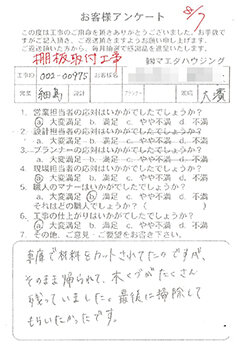 お客様アンケート
8/7
この度は工事のご用命を頂きありがとうございました。お手数で
すがご記入頂き、ご返送頂きますようお願い申し上げます。
ご返送頂いた方から、毎月抽選で感謝品を進呈いたします。
棚板取付工事
㈱マエダハウジング
工事ID 002-00975 お客様名
営業 細島 設計 プランナー 職長 大濱
1. 営業担当者の応対はいかがでしたでしょうか？
a 大変満足 b 満足 c やや不満 d 不満
2. 設計担当者の応対はいかがでしたでしょうか？
a 大変満足 b 満足 c やや不満 d 不満
3. プランナーの応対はいかがでしたでしょうか？
a 大変満足 b 満足 c やや不満 d 不満
4. 現場担当者の応対はいかがでしたでしょうか？
a 大変満足 b 満足 c やや不満 d 不満
5. 職人のマナーはいかがでしたでしょうか？
a 大変満足 b 満足 c やや不満 d 不満
それはどの職人でしょうか（ ）
6. 工事の仕上がりはいかがでしたでしょうか？
a 大変満足 b 満足 c やや不満 d 不満
7. その他、ご意見・ご要望をお書き下さい。
車庫で材料をカットされてたのですが、
そのまま帰られて、木くずがたくさん
残っていました。最後に掃除して
もらいたかったです。